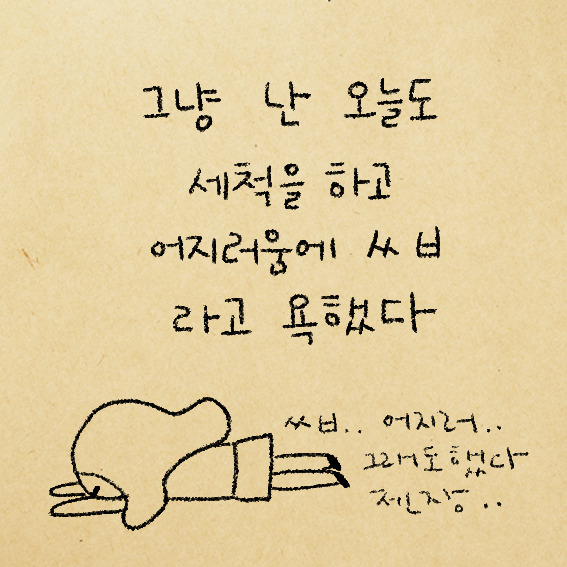 그냥 난 오늘도
세척을 하고
어지러움에 ㅆㅂ
라고 욕했다
ㅆㅂ.. 어지러..
그래도 했다
젠장..